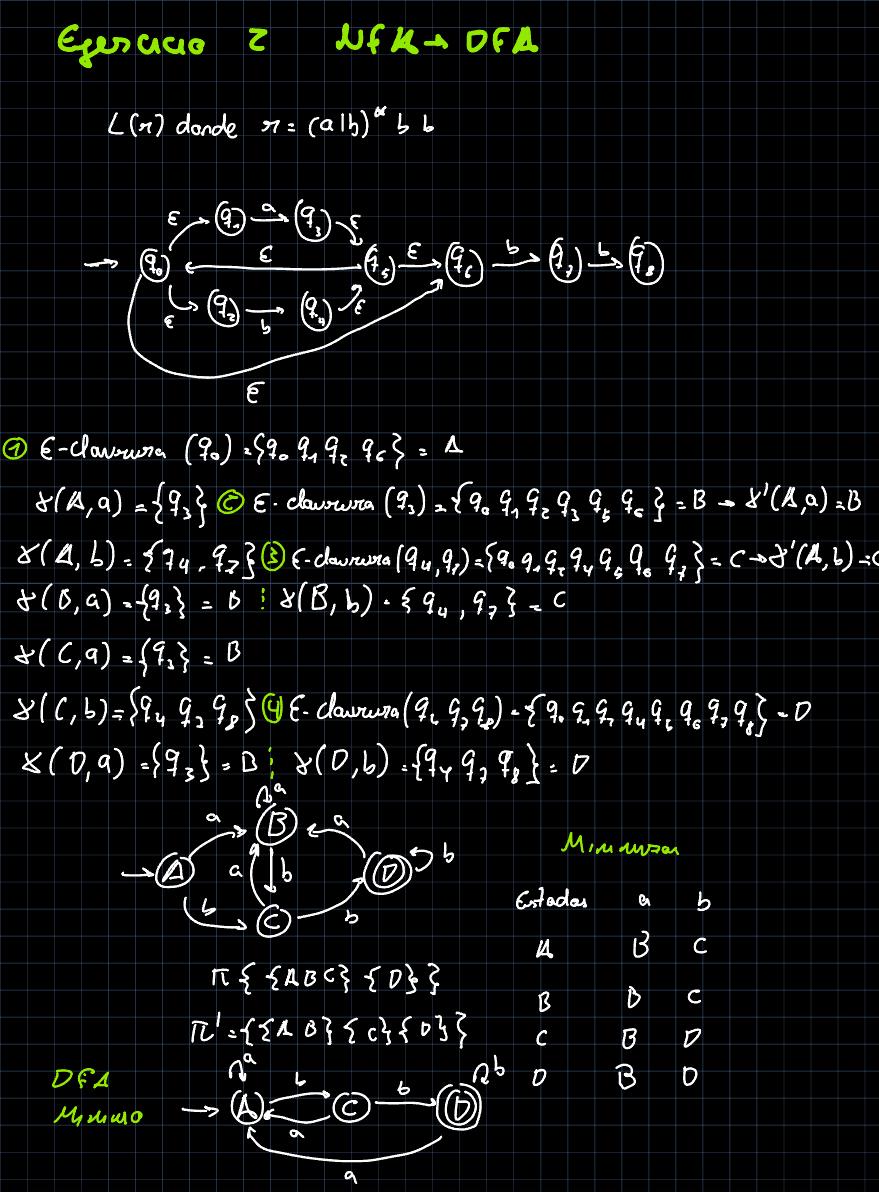 Ejercicio 2 NFA → DFA
L(r) donde r = (a|b)* b b
ε q1 a q3 ε
→ q0 ε q5 ε q6 b q7 b q8
ε q2 b q4 ε
ε
① ε-clausura (q0) = {q0 q1 q2 q6} = A
γ(A,a) = {q3} ② ε-clausura (q3) = {q0 q1 q2 q3 q5 q6} = B → γ'(A,a) = B
γ(A,b) = {q4, q7} ③ ε-clausura (q4,q7) = {q0 q1 q2 q4 q5 q6 q7} = C → γ'(A,b) = C
γ(B,a) = {q3} = B ⋮ γ(B,b) = {q4, q7} = C
γ(C,a) = {q3} = B
γ(C,b) = {q4 q7 q8} ④ ε-clausura (q4 q7 q8) = {q0 q1 q2 q4 q5 q6 q7 q8} = D
γ(D,a) = {q3} = B ⋮ γ(D,b) = {q4 q7 q8} = D
a
a B a
→ A a b D b
b C b
Minimizar
Estados a b
A B C
B B C
C B D
D B D
π { {A B C} {D} }
π' = { {A B} {C} {D} }
DFA
Mínimo
a b b b
→ A C D
a
a